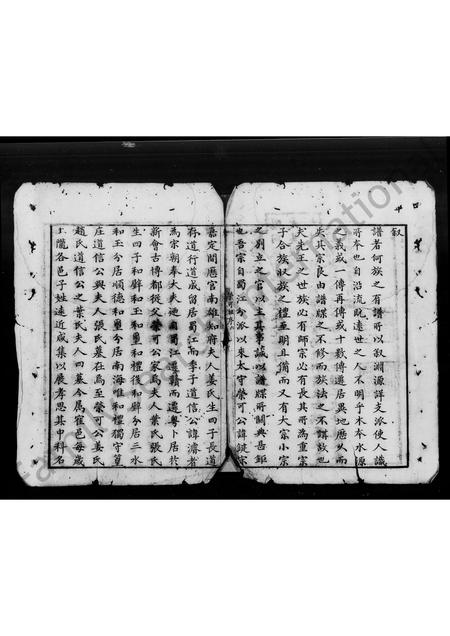 叙
譜者何族之有譜所以叙淵源詳支派使人識
所本也自沿流旣遠世之人不明乎木本水源
之義或一傳再傳或十數傳遷居異地歷久而
失其宗良由譜牒之不修而族法之不講故也
夫先王之世族必有師宗必有長其所為重宗
子合族収族之禮至明且備而又有大宗小宗
之别立之官以主其事誠以譜牒所關與岳鉅
也吾宗自蜀江分派以來太守榮可公諱
嘉定間應官南雄知府夫人姜氏生四子長道
存道行道成留居蜀江而季子道信公諱濟者
為宗朝奉大夫廸自蜀江遷贛而遷粵卜居於
新會古博都從父榮可公家焉夫人葉氏張氏
生四子和辟和玉和重和禮後和辟分居三水
和玉分居順德和重分居南海唯和禮獨守篁
庄道信公與夫人張氏墓在焉至榮可公姜氏
趙氏道信公之葉氏夫人四墓今属寉邑每歲
上隴各邑子姓遠近咸集以展孝思其中科名